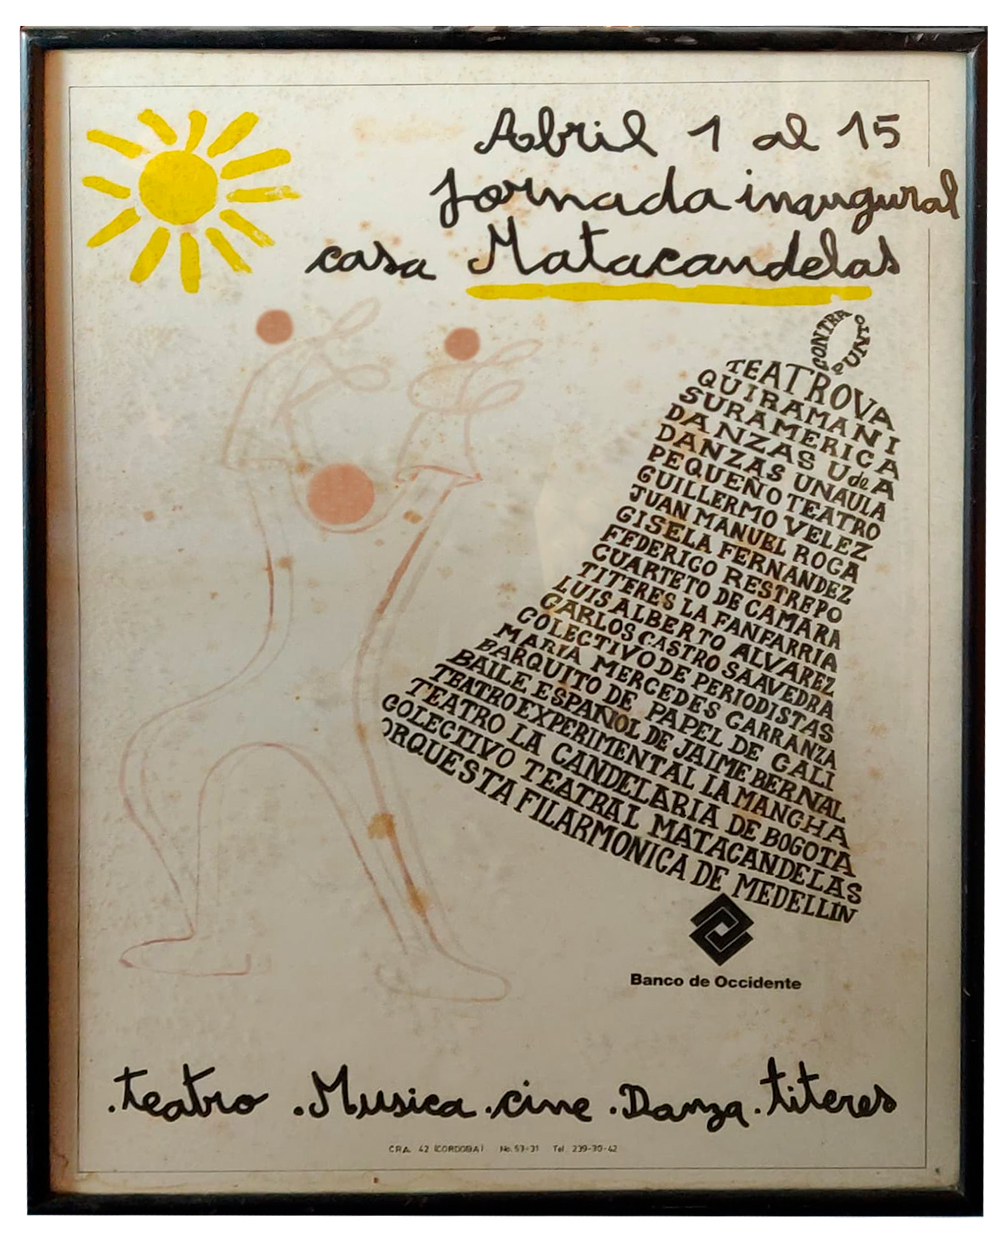 Abril 1 al 15
Jornada inaugural
casa Matacandelas
CONTRAPUNTO
TEATROVA
QUIRAMANI
SURAMERICA
DANZAS UdeA
DANZAS UNAULA
PEQUEÑO TEATRO
GUILLERMO VELEZ
JUAN MANUEL ROCA
GISELA FERNANDEZ
FEDERICO RESTREPO
CUARTETO DE CAMARA
TITERES LA FANFARRIA
LUIS ALBERTO ALVAREZ
CARLOS CASTRO SAAVEDRA
COLECTIVO DE PERIODISTAS
MARIA MERCEDES CARRANZA
BARQUITO DE PAPEL DE CALI
BAILE ESPAÑOL DE JAIME BERNAL
TEATRO EXPERIMENTAL LA MANCHA
TEATRO LA CANDELARIA DE BOGOTA
COLECTIVO TEATRAL MATACANDELAS
ORQUESTA FILARMONICA DE MEDELLIN
Banco de Occidente
.teatro .Musica .cine .Danza .titeres
CRA. 42 (CORDOBA) No. 53-31 Tel. 239-30-42